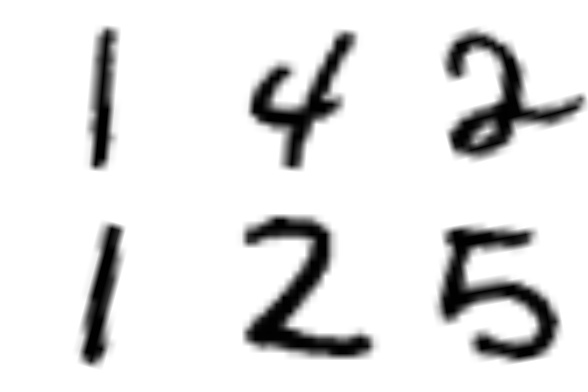 1 4 2
1 2 5